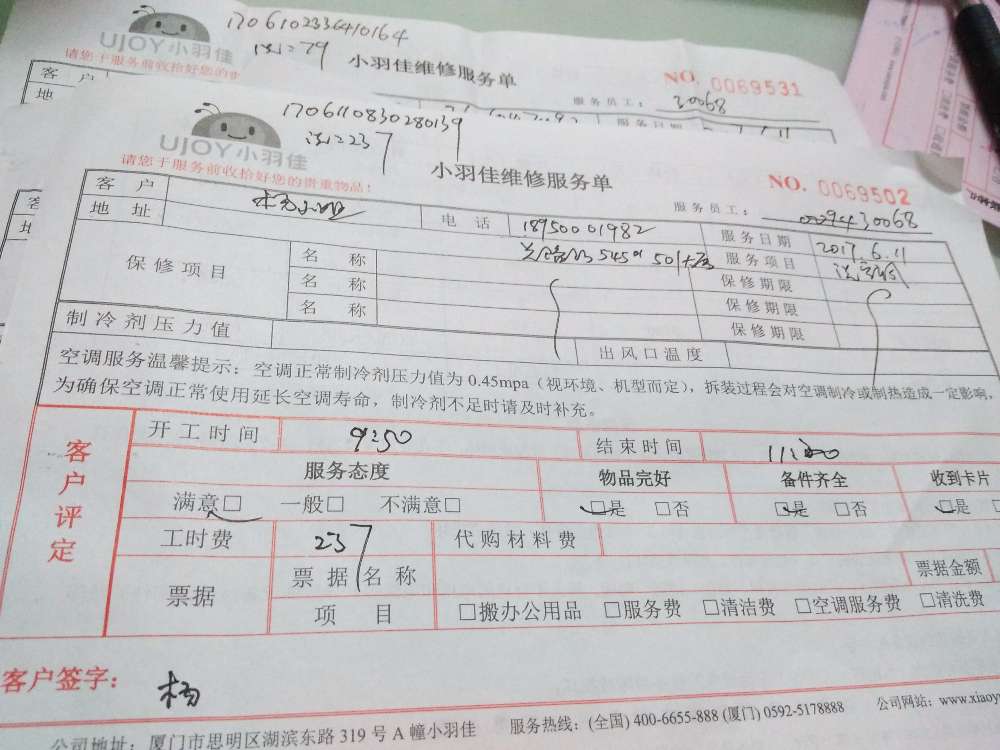 1706102336410164
UJOY小羽佳
79
请您于服务前收拾好您的贵
小羽佳维修服务单
NO. 0069531
服务员工: 30068
客 户
地
1706110830280139
UJOY小羽佳
237
请您于服务前收拾好您的贵重物品!
小羽佳维修服务单
NO. 0069502
服务员工:
30068
客 户
电 话 18950001982 服务日期 2017.6.11
地 址
545 501 服务项目 洗空调
保修项目 名 称 保修期限
名 称 保修期限
名 称 保修期限
制冷剂压力值 出风口温度
空调服务温馨提示: 空调正常制冷剂压力值为 0.45mpa(视环境、机型而定), 拆装过程会对空调制冷或制热造成一定影响,
为确保空调正常使用延长空调寿命, 制冷剂不足时请及时补充。
客户评定
开工时间 9:50 结束时间 11:00
服务态度 物品完好 备件齐全 收到卡片
满意□ 一般□ 不满意□ □是 □否 □是 □否 □是
工时费 237 代购材料费
票据 票据名称 票据金额
项 目 □搬办公用品 □服务费 □清洁费 □空调服务费 □清洗费
客户签字: 杨
公司地址: 厦门市思明区湖滨东路 319 号 A 幢小羽佳 服务热线: (全国) 400-6655-888 (厦门) 0592-5178888 公司网站: www.xiaoy